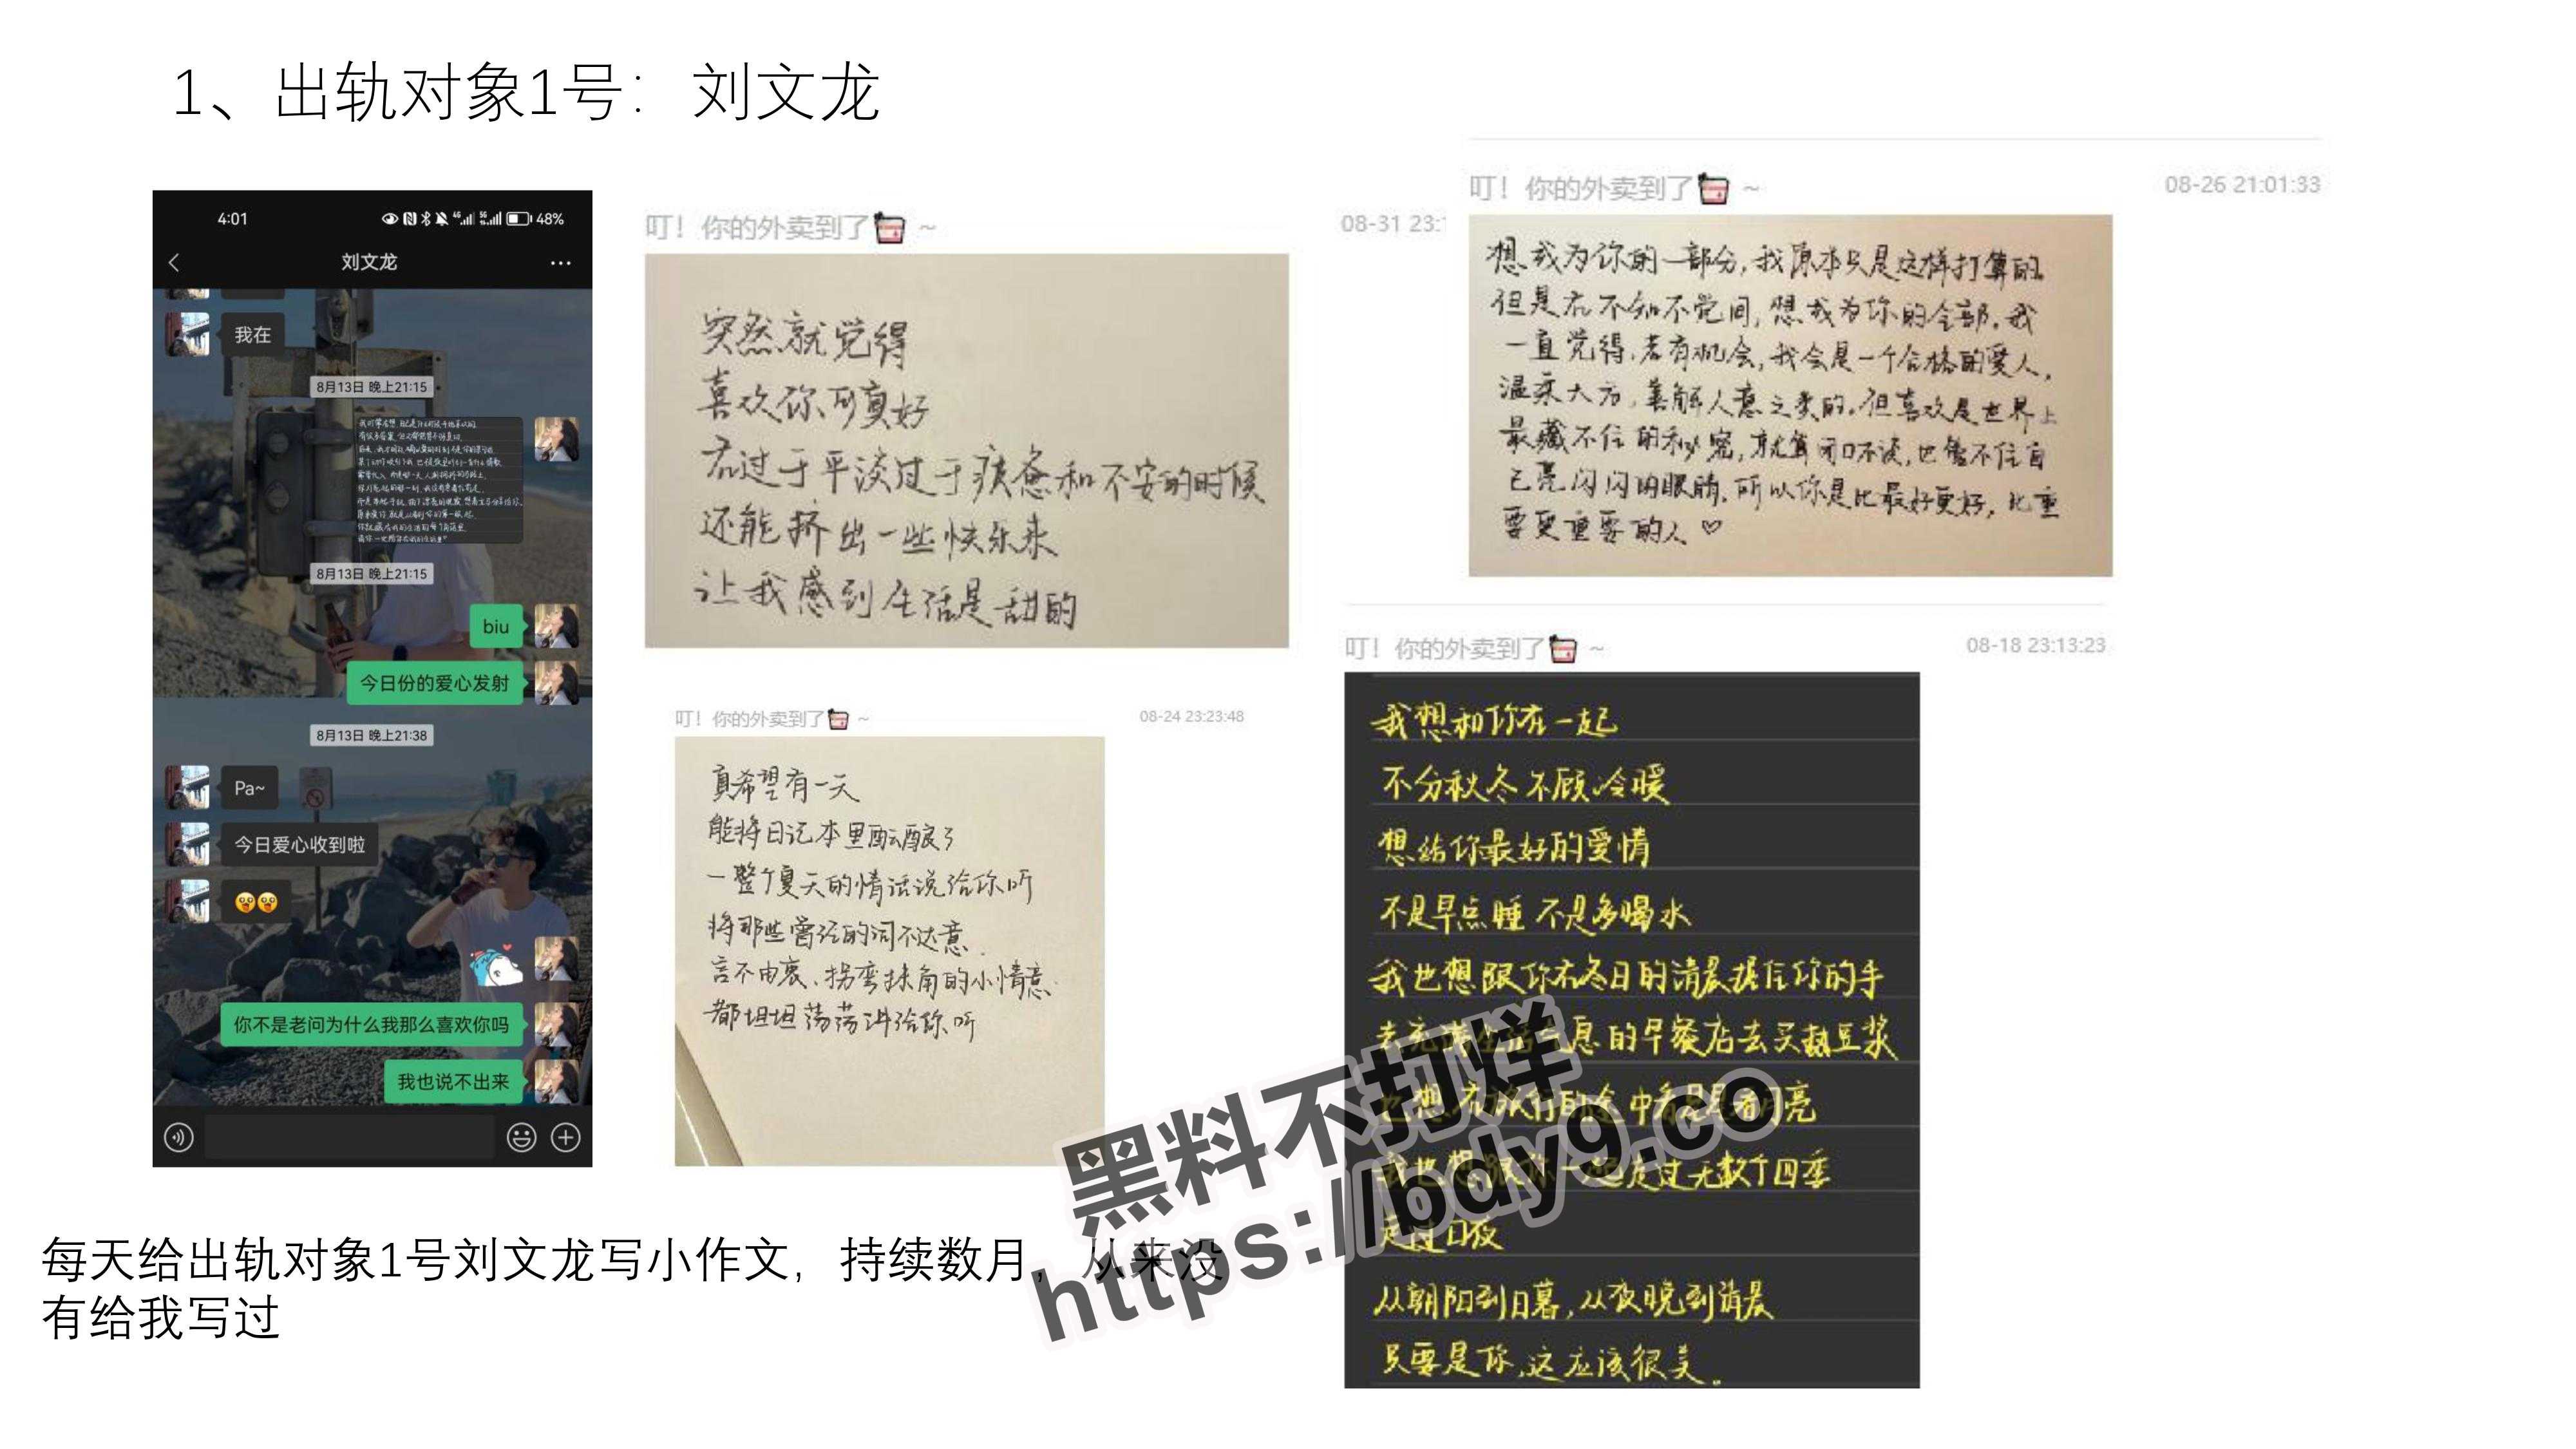 1、出轨对象1号：刘文龙
4:01
48%
刘文龙
我在
8月13日 晚上21:15
8月13日 晚上21:15
biu
今日份的爱心发射
8月13日 晚上21:38
Pa~
今日爱心收到啦
你不是老问为什么我那么喜欢你吗
我也说不出来
叮！你的外卖到了 ~
08-31 23:1
突然就觉得
喜欢你可真好
在过于平淡过于疲惫和不安的时候
还能挤出一些快乐来
让我感到生活是甜的
叮！你的外卖到了 ~ 08-24 23:23:48
真希望有一天
能将日记本里酝酿了
一整个夏天的情话说给你听
将那些曾经的词不达意
言不由衷、拐弯抹角的小情意
都坦坦荡荡讲给你听
叮！你的外卖到了 ~ 08-26 21:01:33
想成为你的一部分，我原本只是这样打算的
但是在不知不觉间，想成为你的全部。我
一直觉得，若有机会，我会是一个合格的爱人，
温柔大方，善解人意之类的。但喜欢是世界上
最藏不住的秘密，就算闭口不谈，也瞒不住自
己亮闪闪的眼睛，所以你是比最好更好，比重
要更重要的人♡
叮！你的外卖到了 ~ 08-18 23:13:23
我想和你在一起
不分秋冬 不顾冷暖
想给你最好的爱情
不是早点睡 不是多喝水
我也想跟你在冬日的清晨握住你的手
去充满生活气息的早餐店去买热豆浆
也想在旅行的途中看星星看月亮
我也想跟你一起走过无数个四季
走过日夜
从朝阳到日暮，从夜晚到清晨
只要是你，这应该很美。
每天给出轨对象1号刘文龙写小作文，持续数月，从来没
有给我写过
黑料不打烊
https://bdy9.co